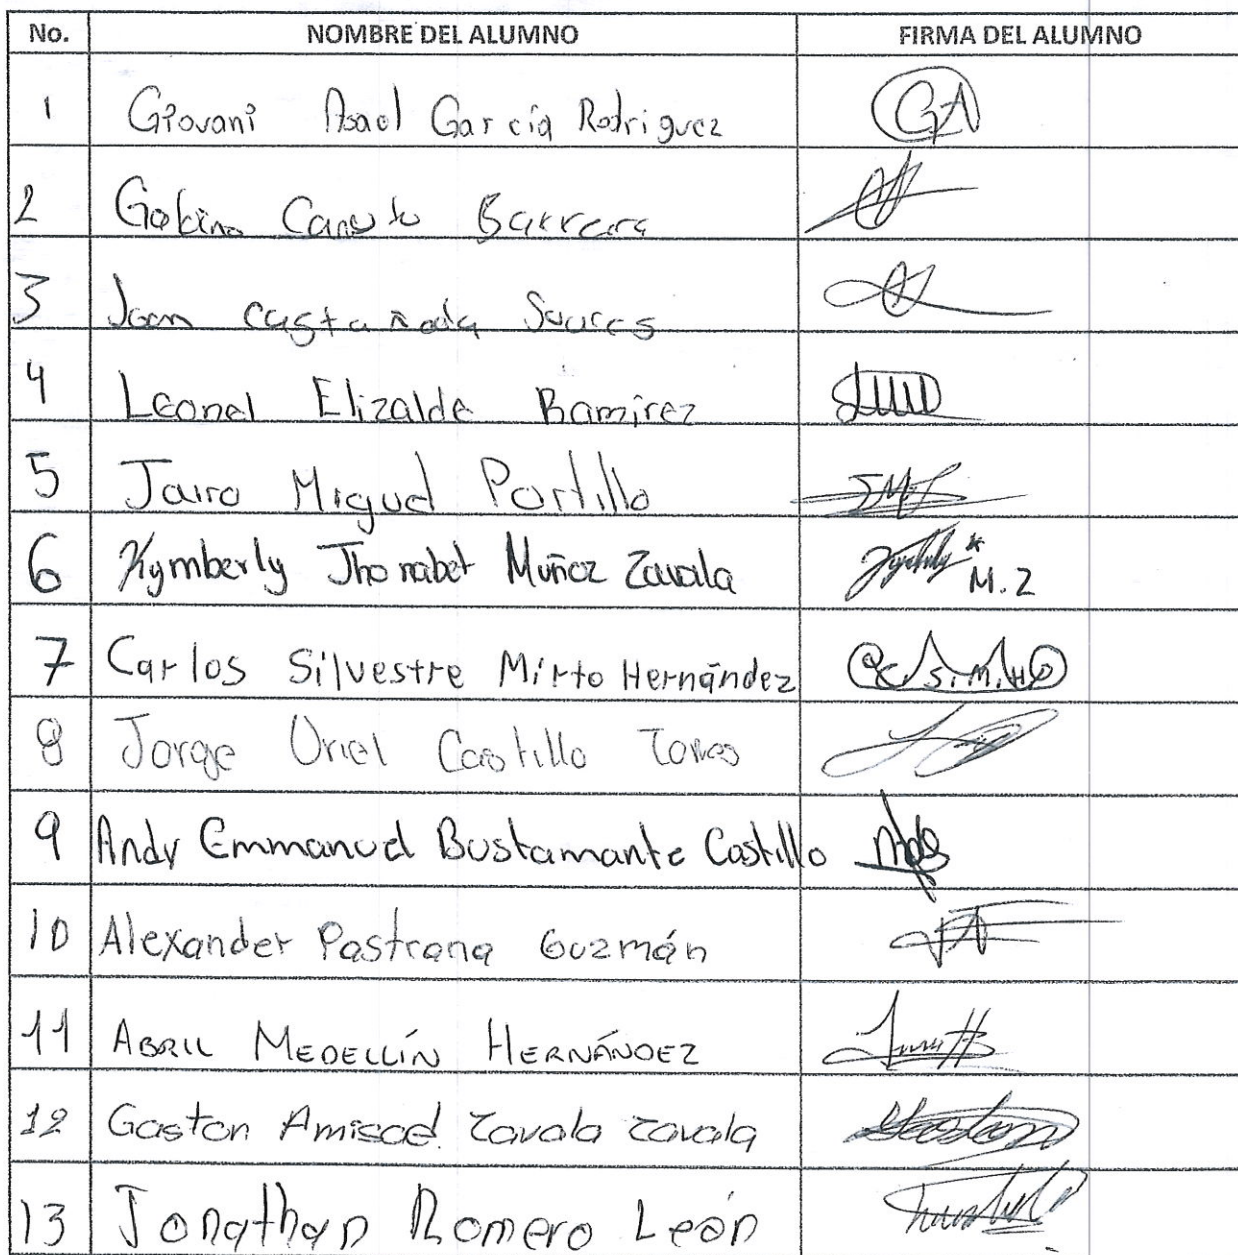 No. NOMBRE DEL ALUMNO FIRMA DEL ALUMNO
1 Giovani Asael García Rodriguez GA
2 Gabino Canuto Barrera
3 Joan Castañeda
4 Leonel Elizalde Ramirez
5 Jairo Miguel Portillo JMP
6 Kymberly Jhonabet Muñoz Zavala M.Z
7 Carlos Silvestre Mirto Hernández C.S.M.H
8 Jorge Uriel Castillo Torres
9 Andy Emmanuel Bustamante Castillo
10 Alexander Pastrana Guzmán
11 ABRIL MEDELLÍN HERNÁNDEZ
12 Gaston Amisad Zavala Zavala
13 Jonathan Romero León